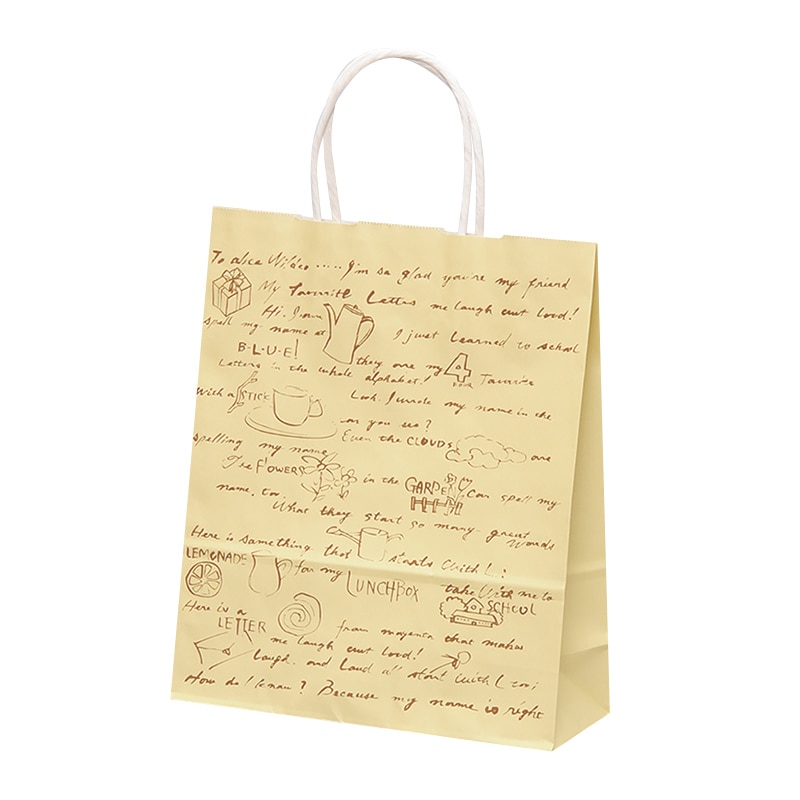 To alica Wildeo ..... I'm so glad you're my friend
My Favourite Letters me laugh out loud!
Hi. I'm
spell my name at I just learned to school
B-L-U-E! they are my 4 Favorite
Letters in the whole alphabet!
With a STICK Look. I wrode my name in the
can you see?
Even the CLOUDS are
spelling my name
The FLOWERS in the GARDEN Can spell my
name, too
What they start so many great Words
Here is something that starts With L:
LEMONADE for my LUNCHBOX take With me to SCHOOL
Here is a LETTER from magenta that makes
me laugh out loud!
Laugh. and Loud all start With L too;
How do I know? Because my name is right